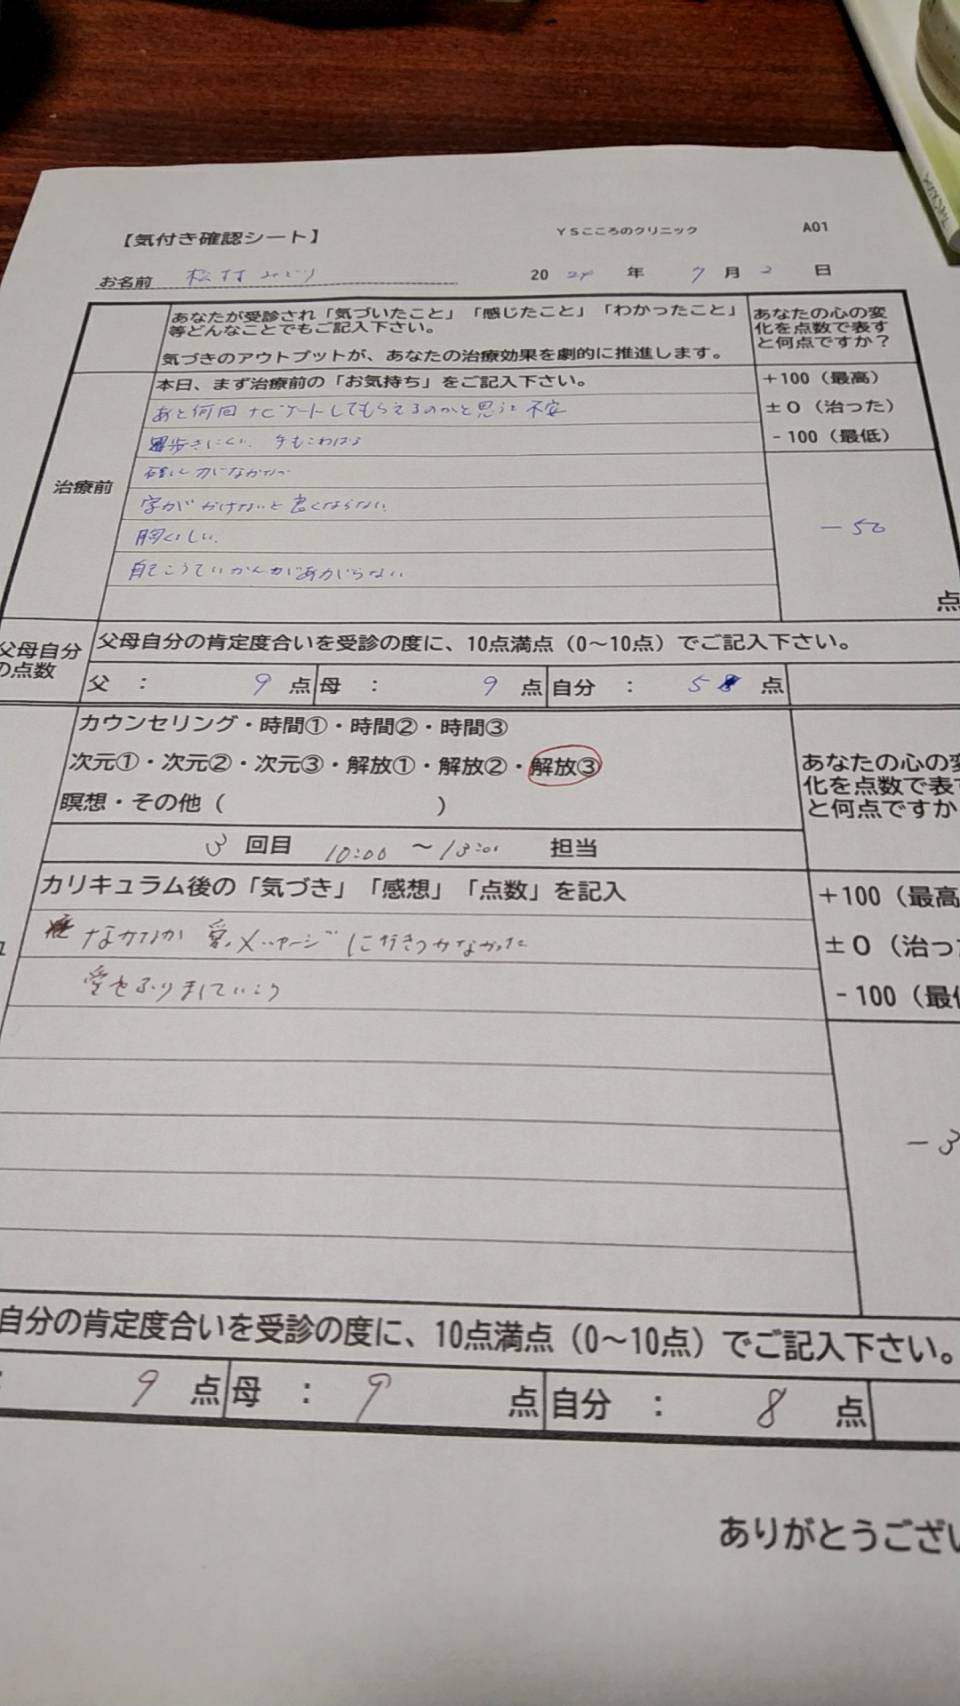 【気付き確認シート】 ＹＳこころのクリニック A01
お名前 松村みどり 2024年 7月2日
あなたが受診され「気づいたこと」「感じたこと」「わかったこと」
等どんなことでもご記入下さい。
気づきのアウトプットが、あなたの治療効果を劇的に推進します。
あなたの心の変
化を点数で表す
と何点ですか？
治療前
本日、まず治療前の「お気持ち」をご記入下さい。
＋100（最高）
±０（治った）
－100（最低）
あと何回ナビゲートしてもらえるのかと思うと不安
歩きにくい 手もこわばる
字がかけないと良くならない
胸くるしい
自こうていかんがあがらない
－50
点
父母自分
の点数
父母自分の肯定度合いを受診の度に、10点満点（0～10点）でご記入下さい。
父 ： 9 点 母 ： 9 点 自分 ： 5 点
カウンセリング・時間①・時間②・時間③
次元①・次元②・次元③・解放①・解放②・解放③
瞑想・その他（ ）
あなたの心の変
化を点数で表す
と何点ですか
3 回目 10:00 ～13:00 担当
カリキュラム後の「気づき」「感想」「点数」を記入
＋100（最高
±０（治っ
－100（最低
なかなか 愛メッセージに行きつかなかった
愛をふりましていこう
－3
自分の肯定度合いを受診の度に、10点満点（0～10点）でご記入下さい。
： 9 点 母 ： 9 点 自分 ： 8 点
ありがとうござい